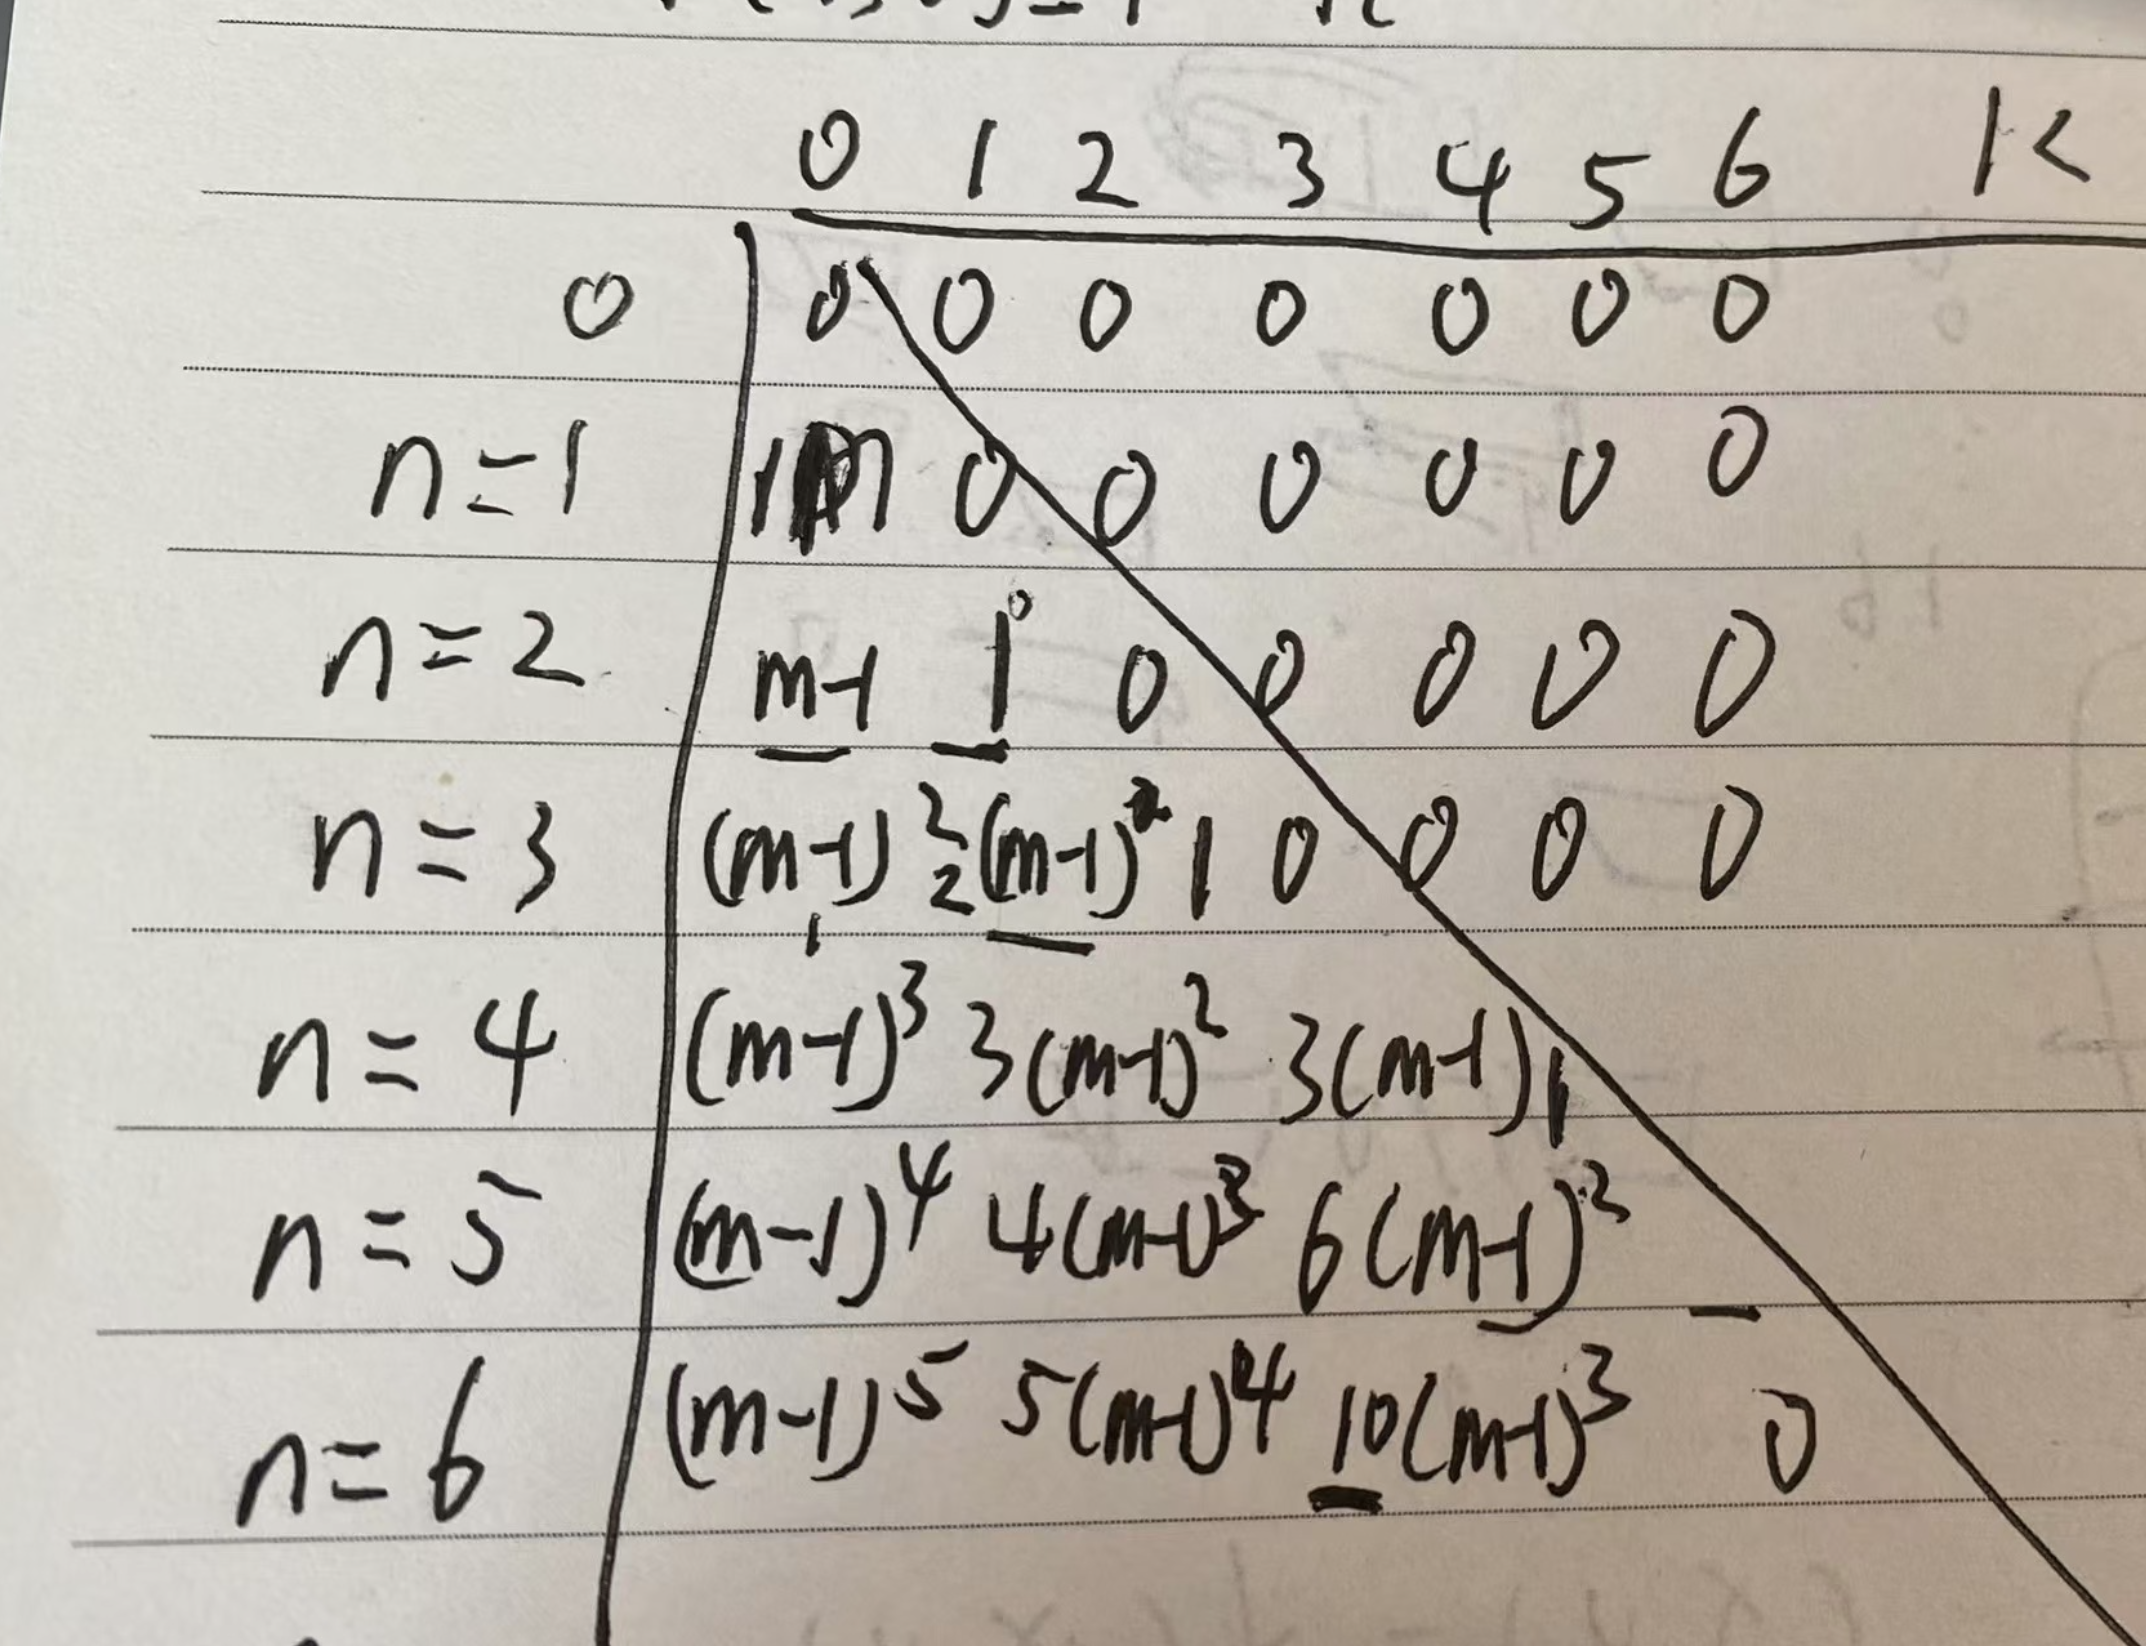 0 1 2 3 4 5 6 K
0 0 0 0 0 0 0 0
n=1 1 0 0 0 0 0 0
n=2 m-1 1 0 0 0 0 0
n=3 (m-1)² 2(m-1) 1 0 0 0 0
n=4 (m-1)³ 3(m-1)² 3(m-1) 1
n=5 (m-1)⁴ 4(m-1)³ 6(m-1)²
n=6 (m-1)⁵ 5(m-1)⁴ 10(m-1)³ 0